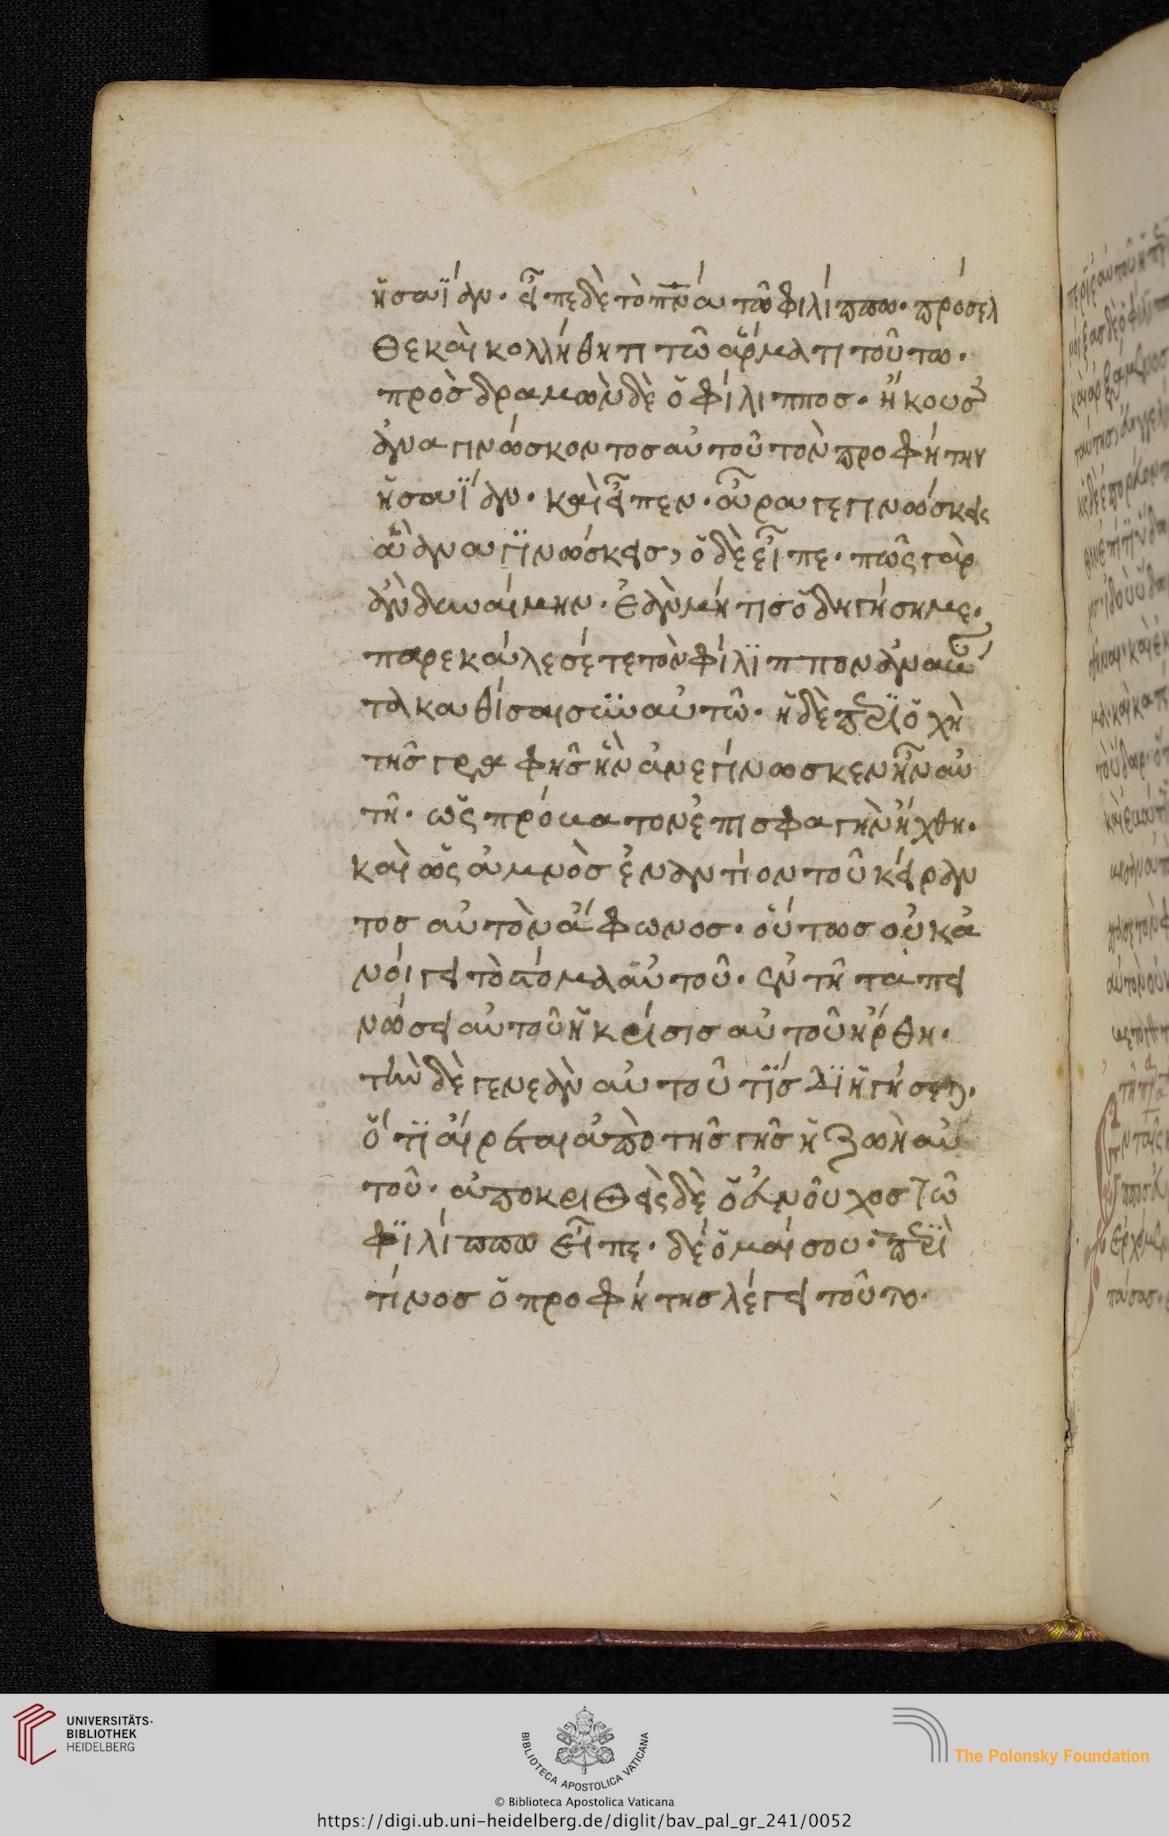 ἡσαΐαν. εἶπε δὲ τὸ πνα τῶ φιλίππω. πρόσελ
θε καὶ κολλήθητι τῶ ἅρματι τούτω.
προσδραμὼν δὲ ὁ φίλιππος. ἤκουσ
ἀναγινώσκοντος αὐτοῦ τὸν προφήτην
ἡσαΐαν. καὶ εἶπεν. ἆρα γε γινώσκεις
ἃ ἀναγϊνώσκεις, ὁ δὲ εἶπε. πῶς γὰρ
ἂν δυναίμην. ἐὰν μή τις ὁδηγήση με.
παρεκάλεσέ τε τὸν φίλϊππον ἀναβάν
τα καθίσαι σὺν αὐτῶ. ἡ δὲ περϊοχὴ
τῆς γραφῆς ἣν ἀνεγίνωσκεν ἦν αὕ
τη. ὡς πρόβατον ἐπι σφαγὴν ἤχθη.
καὶ ὡς ἀμνὸς ἐναντίον τοῦ κείραν
τος αὐτὸν ἄφωνος. οὕτως οὐκ ἀ
νοίγει τὸ στόμα αὐτοῦ. ἐν τῆ ταπει
νώσει αὐτοῦ ἡ κρίσις αὐτοῦ ἤρθη.
τὴν δὲ γενεὰν αὐτοῦ τΐς δϊηγήσεται.
ὅτϊ αἴρεται ἀπὸ τῆς γῆς ἡ ζωὴ αὐ
τοῦ. ἀποκριθεὶς δὲ ὁ εὐνοῦχος τῶ
φϊλίππω εἶπε. δέομαί σου. περϊ
τίνος ὁ προφήτης λέγει τοῦτο.
UNIVERSITÄTS-
BIBLIOTHEK
HEIDELBERG
BIBLIOTECA APOSTOLICA VATICANA
The Polonsky Foundation
© Biblioteca Apostolica Vaticana
https://digi.ub.uni-heidelberg.de/diglit/bav_pal_gr_241/0052